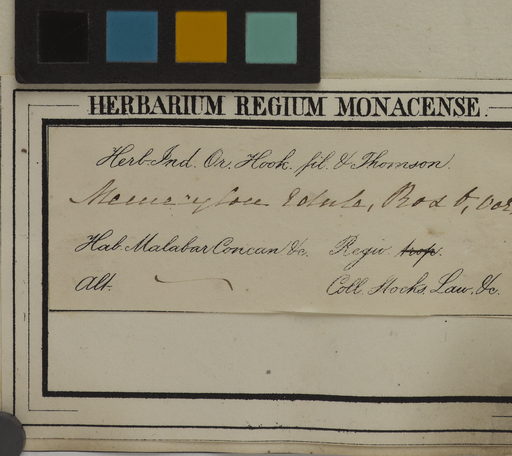 HERBARIUM REGIUM MONACENSE.
Herb. Ind. Or. Hook. fil. & Thomson.
Memecylon edule, Roxb,
Hab. Malabar Concan &c. Regio trop.
Alt.
Coll. Stocks, Law, &c.